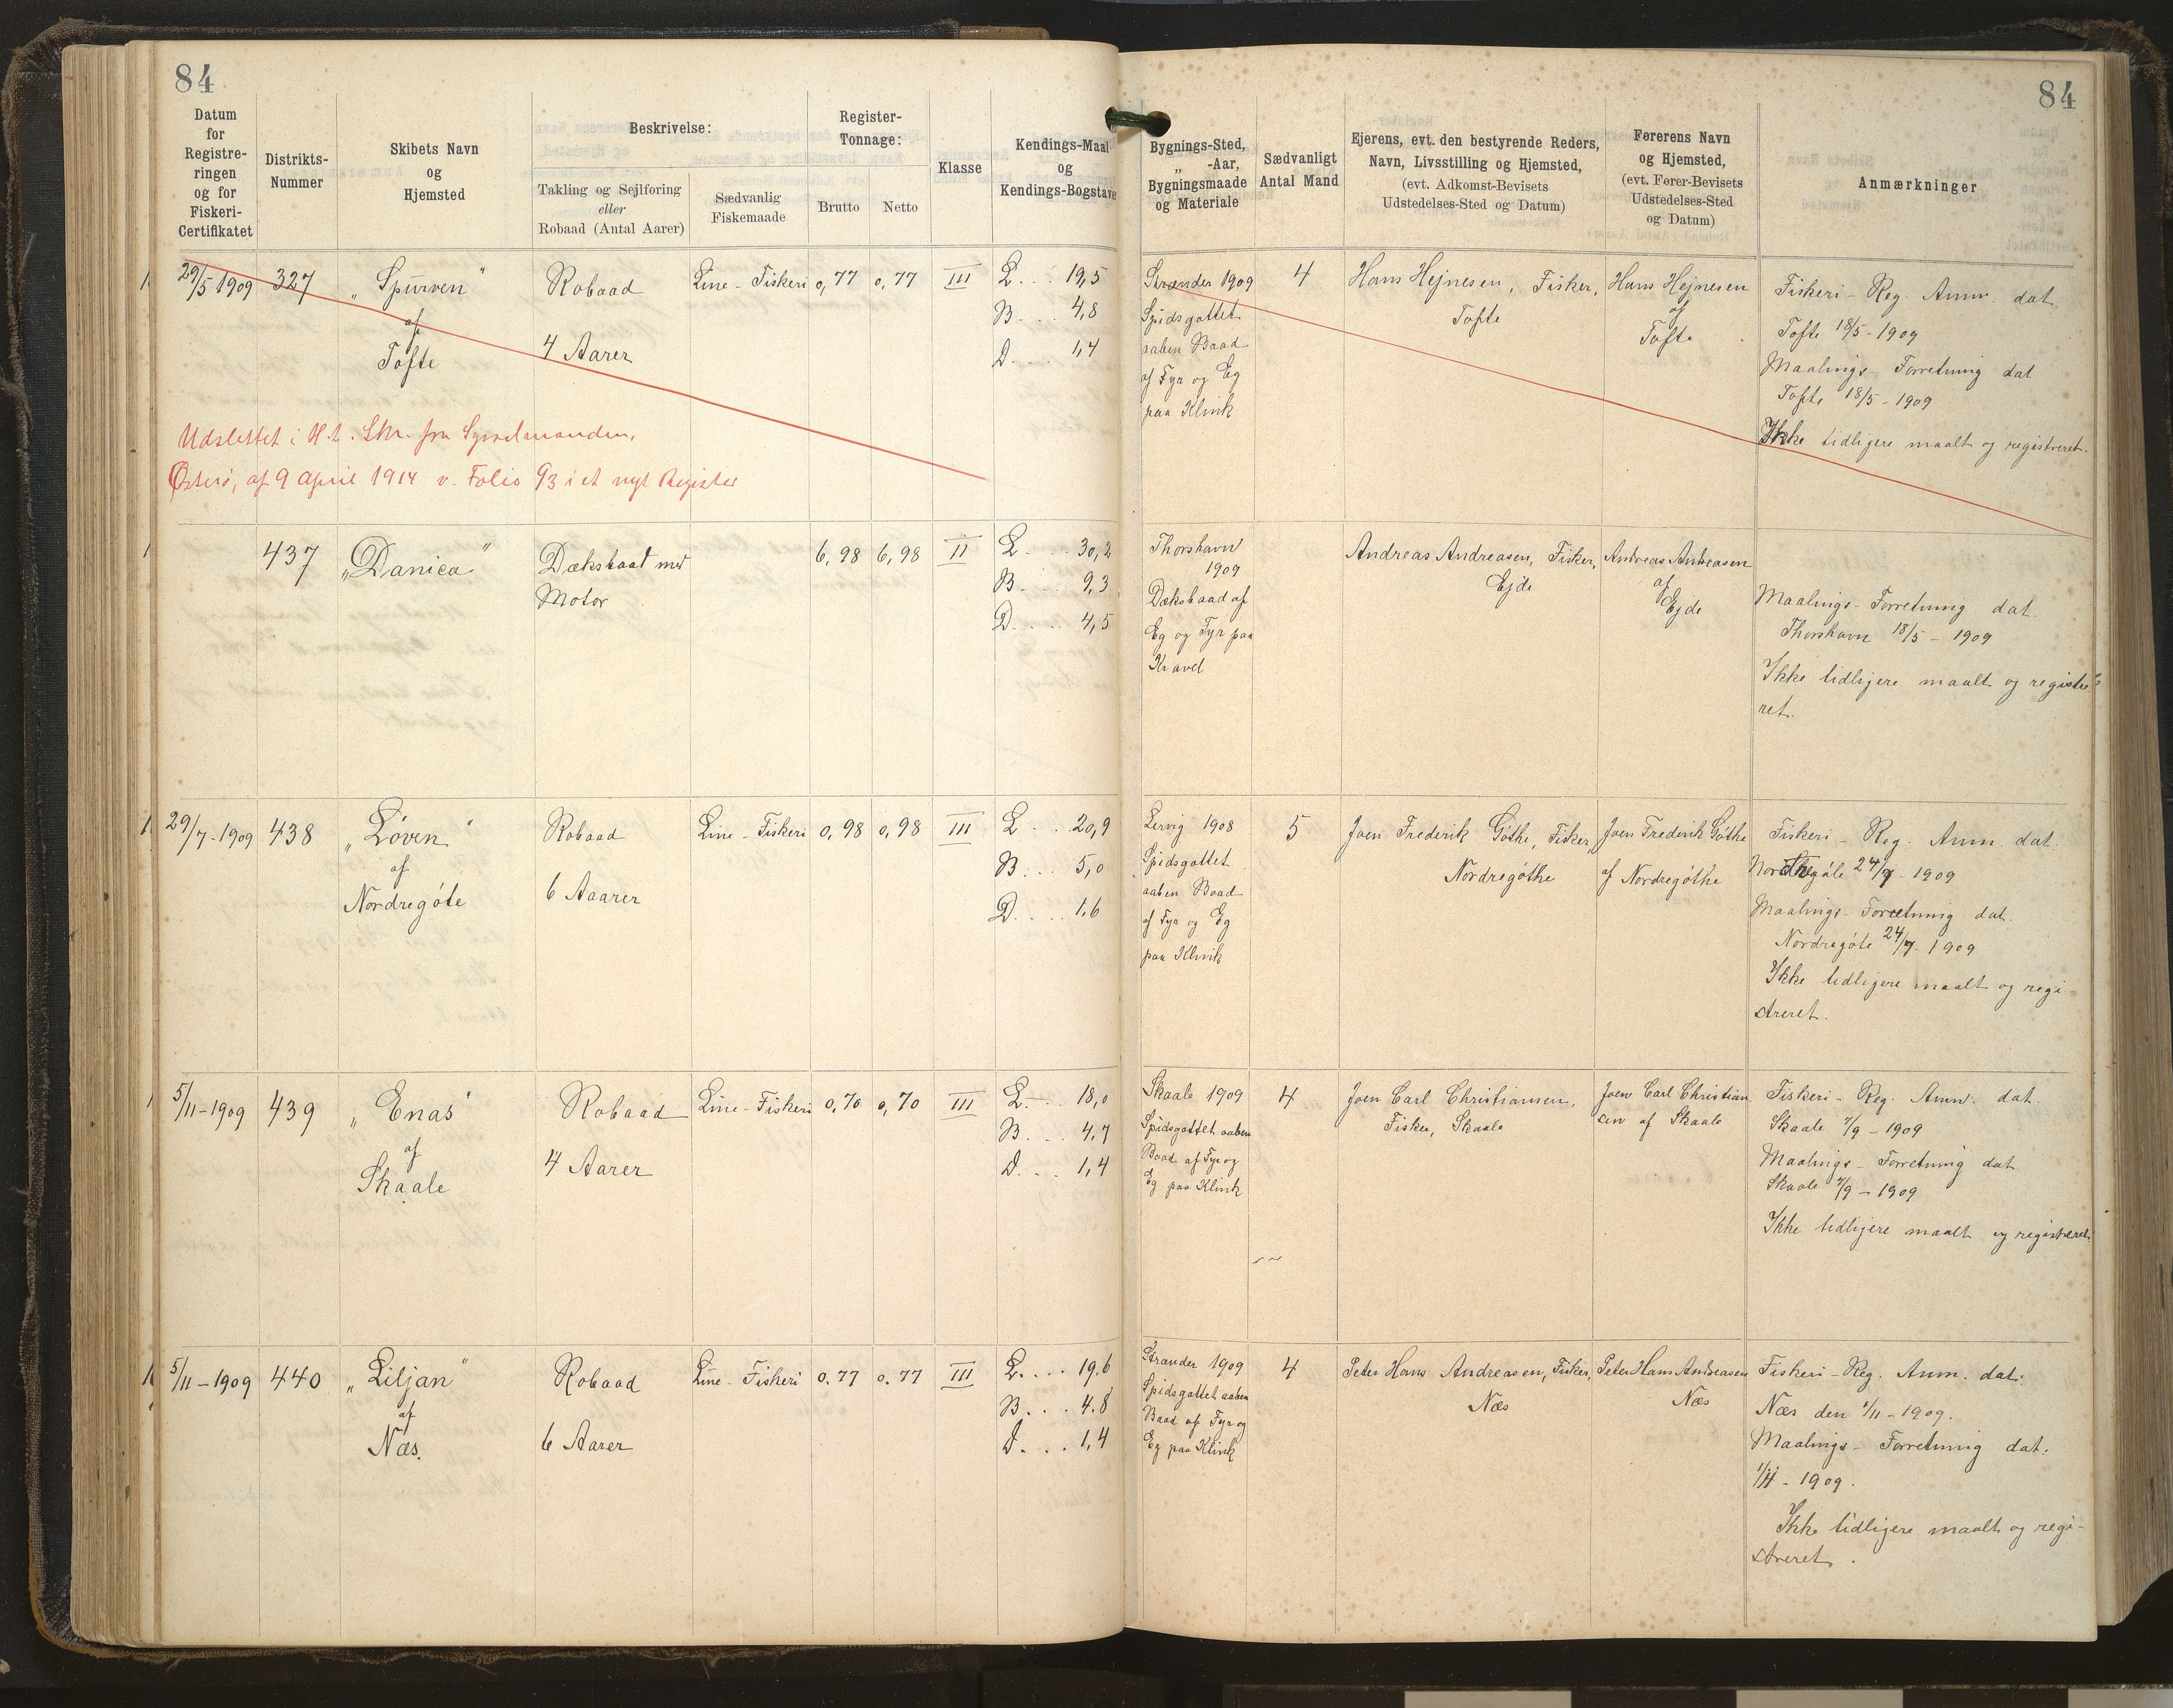 84
84
Datum
for
Registre-
ringen
og for
Fiskeri-
Certifikatet
Distrikts-
Nummer
Skibets Navn
og
Hjemsted
Beskrivelse:
Takling og Sejlføring
eller
Robaad (Antal Aarer)
Sædvanlig
Fiskemaade
Register-
Tonnage:
Brutto
Netto
Klasse
Kendings-Maal
og
Kendings-Bogstaver
Bygnings-Sted,
„ -Aar,
Bygningsmaade
og Materiale
Sædvanligt
Antal Mand
Ejerens, evt. den bestyrende Reders,
Navn, Livsstilling og Hjemsted,
(evt. Adkomst-Bevisets
Udstedelses-Sted og Datum)
Førerens Navn
og Hjemsted,
(evt. Fører-Bevisets
Udstedelses-Sted
og Datum)
Anmærkninger
29/5 1909
327
„Spurven“
af
Tofte
Robaad
4 Aarer
Line-Fiskeri
0,77
0,77
III
L... 19,5
B... 4,8
D.... 1,4
Strander 1909
Spidsgattet
aaben Baad
af Fyr og Eg
paa Klink
4
Hans Hejnesen, Fisker,
Tofte
Hans Hejnesen
af
Tofte
Fiskeri-Reg. Anm. dat.
Tofte 18/5-1909
Maalings-Forretning dat
Tofte 18/5-1909
Ikke tidligere maalt og registreret.
Udslettet i H.t. Skr. fra Sysselmanden,
Østerø, af 9 April 1914 v. Folio 93 i et nyt Register
437
„Danica“
Dæksbaad med
Motor
6,98
6,98
II
L... 30,2
B.... 9,3
D.... 4,5
Thorshavn
1909
Dæksbaad af
Eg og Fyr paa
Kravel
Andreas Andreasen, Fisker,
Ejde
Andreas Andreasen
af
Ejde
Maalings-Forretning dat.
Thorshavn 18/5-1909
Ikke tidligere maalt og registre-
ret.
29/7-1909
438
„Løven“
af
Nordregøte
Robaad
6 Aaarer
Line-Fiskeri
0,98
0,98
III
L... 20,9
B... 5,0
D.... 1,6
Lervig 1908
Spidsgattet
aaben Baad
af Fyr og Eg
paa Klink
5
Joen Frederik Gøthe, Fisker,
Nordregøthe
Joen Frederik Gøthe
af Nordregøthe
Fiskeri-Reg. Anm. dat.
Nordregøte 24/7-1909
Maalings-Forretning dat.
Nordregøte 24/7-1909
Ikke tidligere maalt og regi-
streret.
5/11-1909
439
„Enas“
af
Skaale
Robaad
4 Aarer
Line-Fiskeri
0,70
0,70
III
L... 18,0
B... 4,7
D... 1,4
Skaale 1909
Spidsgattet aaben
Baad af Fyr og
Eg paa Klink
4
Joen Carl Christiansen,
Fisker, Skaale
Joen Carl Christian
sen af Skaale
Fiskeri-Reg. Anm. dat.
Skaale 7/9-1909
Maalings-Forretning dat
Skaale 7/9-1909
Ikke tidligere maalt og registreret.
5/11-1909
440
„Liljan“
af
Næs.
Robaad
6 Aarer
Line-Fiskeri
0.77
0.77
III
L.... 19.6
B... 4.8
D... 1,4
Strander 1909
Spidsgattet aaben
Baad af Fyr og
Eg paa Klink
4
Peter Hans Andreasen, Fisker,
Næs
Peter Hans Andreasen
Næs
Fiskeri-Reg. Anm. dat.
Næs den 1/11-1909.
Maalings-Forretning dat.
1/11-1909.
Ikke tidligere maalt og regi-
streret.